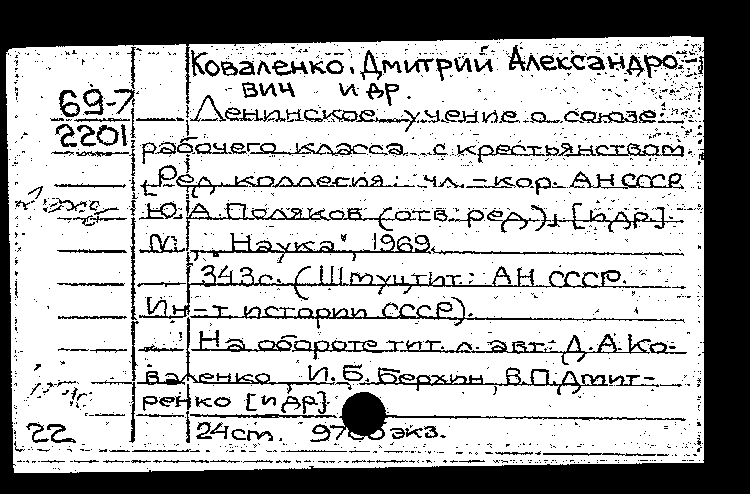 Коваленко, Дмитрий Александро-
вич и др.
69-7
Ленинское учение о союзе
2201
рабочего класса с крестьянством
[Ред. коллегия: чл.-кор. АН СССР
Ю.А. Поляков (отв. ред.)], [и др.]
М., "Наука", 1969.
343 с. (Шмуцтит.: АН СССР.
Ин-т истории СССР).
На обороте тит. л. авт.: Д.А. Ко-
валенко, И.Б. Берхин, В.П. Дмит-
ренко [и др.]
22
24 см. экз.